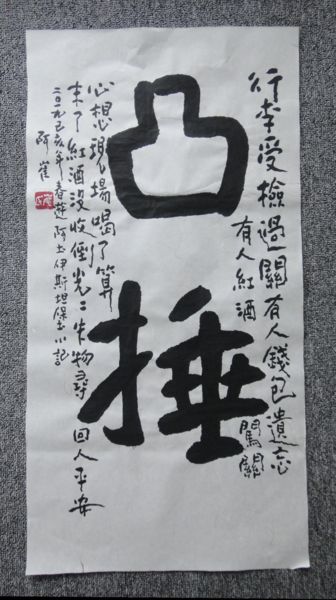 凸捶
行李受檢過關有人錢包遺忘
有人紅酒闖關
心想現場喝了算
未了紅酒沒收倒光二件物尋回人平安
二〇一九己亥年春遊阿土伊斯坦堡小記
阿崔